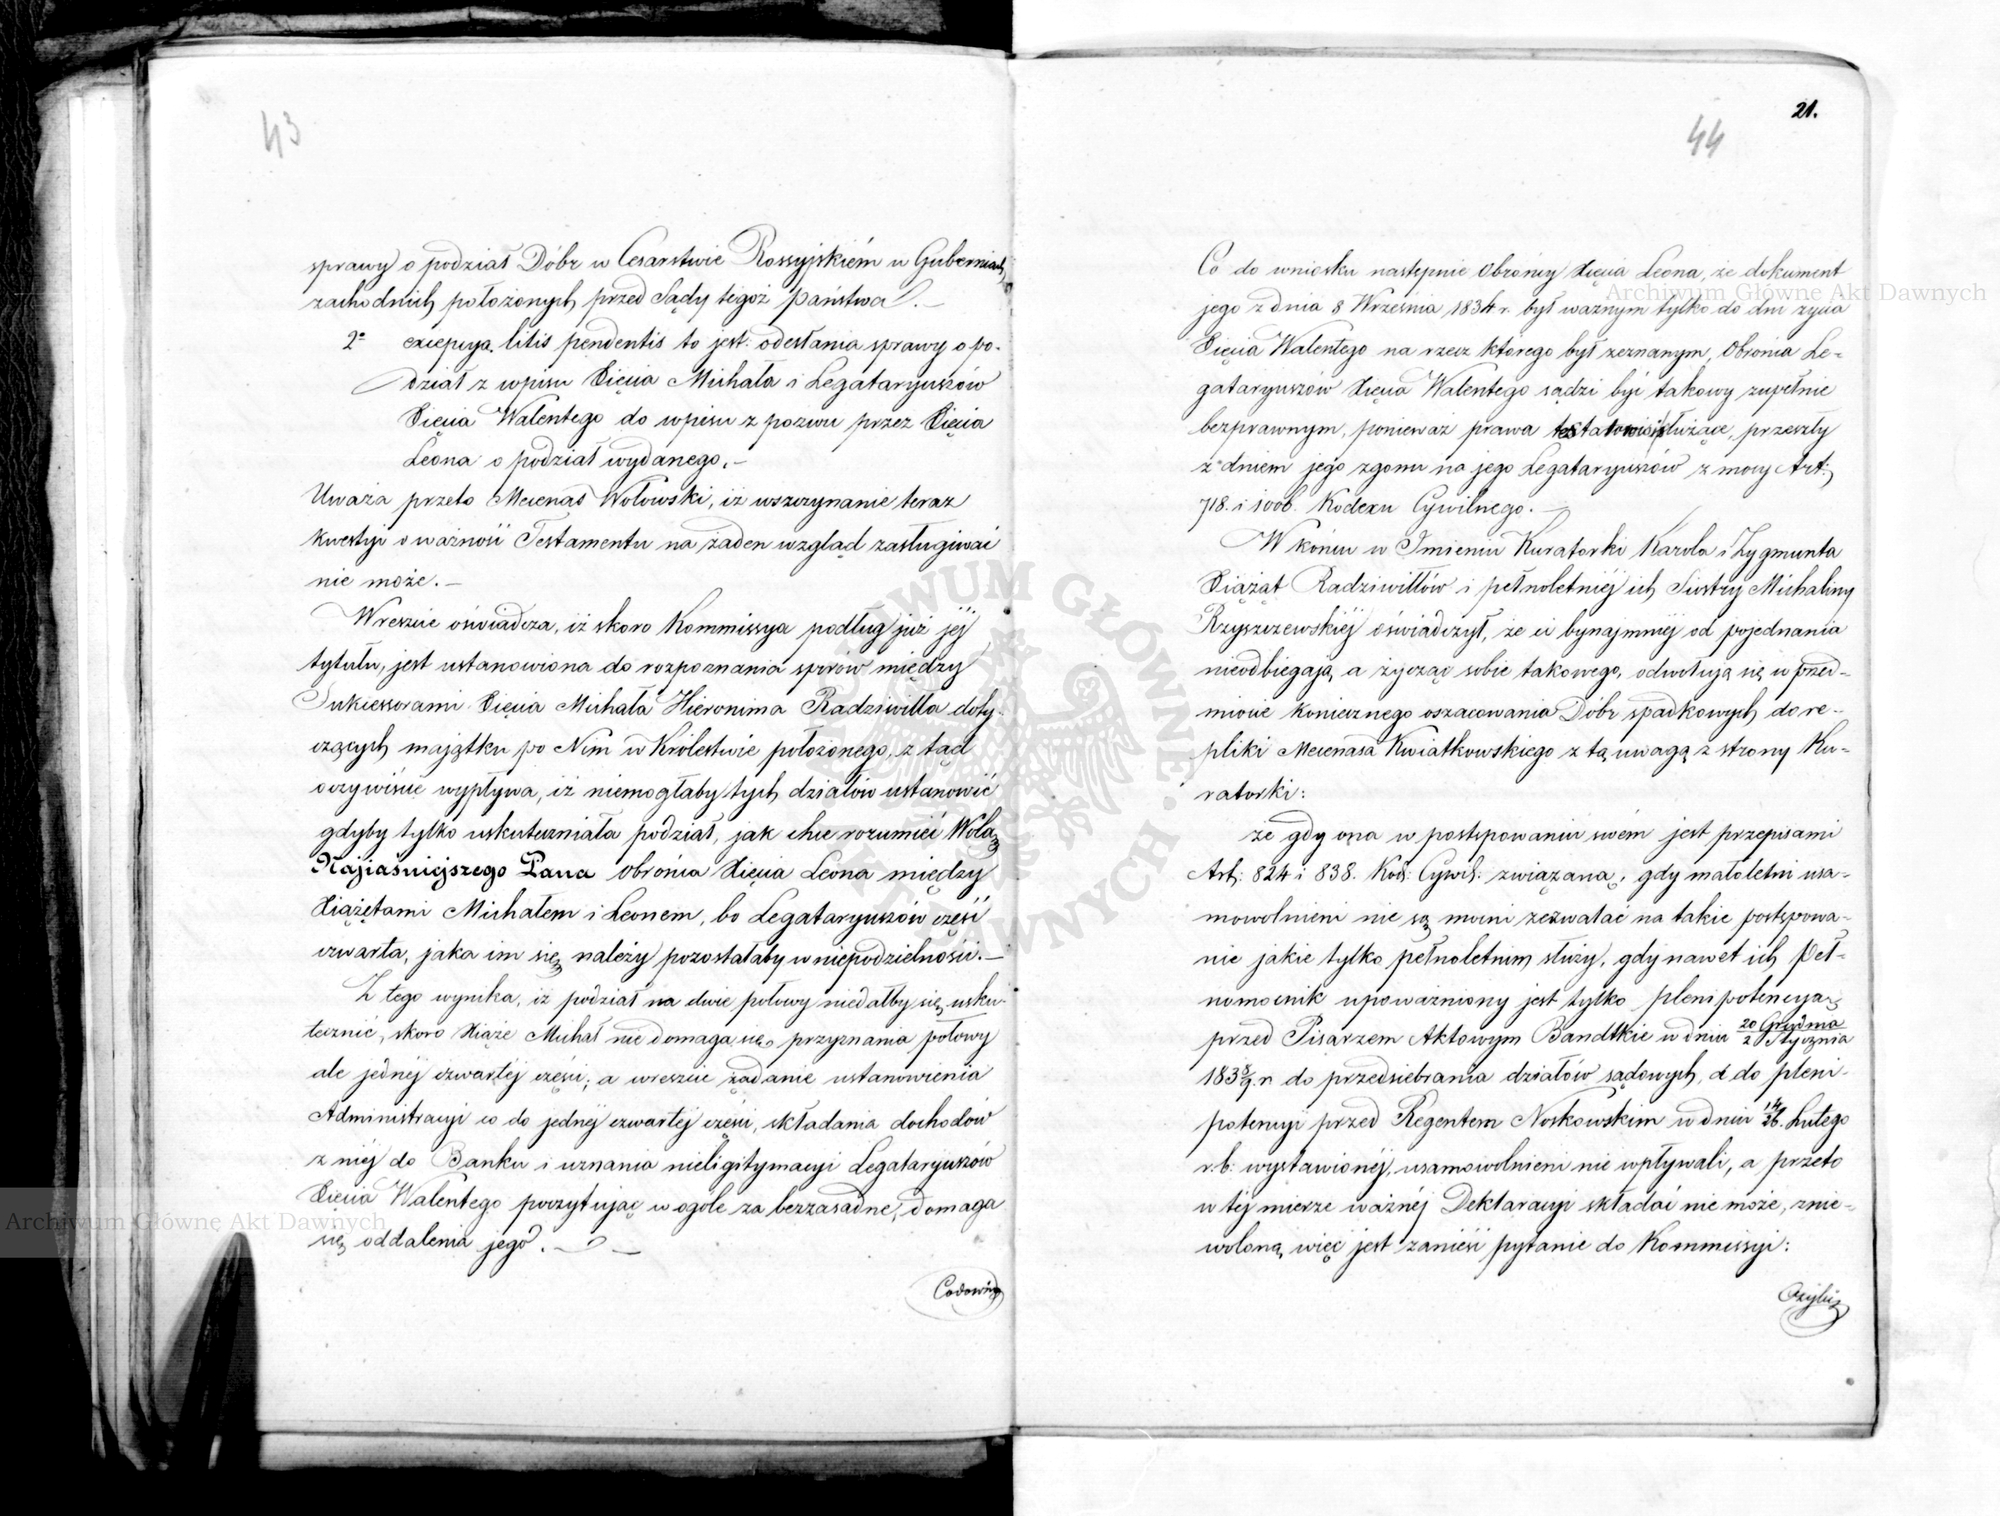 43
sprawy o podział Dóbr w Cesarstwie Rossyjskiém w Guberniach
zachodnich położonych przed Sądy tegoż państwa. —
2º excepcya litis pendentis to jest: odesłania sprawy o po-
dział z wpisu Xięcia Michała i Legataryuszów
Xięcia Walentego do wpisu z pozwu przez Xięcia
Leona o podział wydanego. —
Uważa przeto Mecenas Wołowski, iż wszczynanie teraz
kwestyi o ważności Testamentu na żaden wzgląd zasługiwać
nie może. —
Wreszcie oświadcza, iż skoro Kommissya podług już jéj
tytułu, jest ustanowiona do rozpoznania sporów między
Sukcessorami Xięcia Michała Hieronima Radziwiłła doty-
czących majątku po Nim w Królestwie położonego, z tąd
oczywiście wypływa, iż niemogłaby tych działów ustanowić
gdyby tylko uskuteczniała podział, jak chce rozumieć Wolą
Najjaśniejszego Pana Obrońca Xięcia Leona między
Xiążętami Michałem i Leonem, bo Legataryuszów część
czwarta, jaka im się należy pozostałaby w niepodzielności. —
Z tego wynika, iż podział na dwie połowy niedałby się usku-
tecznić, skoro Xiąże Michał nie domaga się przyznania połowy
ale jednéj czwartéj części; a wreszcie żądanie ustanowienia
Administracyi co do jednéj czwartéj części, składania dochodów
z niéj do Banku i uznania nieligitymacyi Legataryuszów
Xięcia Walentego poczytując w ogóle za bezzasadne, domaga
się oddalenia jego. —
21.
44
Co do wniosku następnie Obrońcy Xięcia Leona, że dokument
jego z dnia 8 Września 1834 r. był ważnym tylko do dni życia
Xięcia Walentego na rzecz którego był zeznanym, Obrońca Le-
gataryuszów Xięcia Walentego sądzi być takowy zupełnie
bezprawnym, ponieważ prawa testatorowi służące, przeszły
z dniem jego zgonu na jego Legataryuszów z mocy Art:
718. i 1006. Kodexu Cywilnego. —
W końcu w Imieniu Kuratorki Karola i Zygmunta
Xiążąt Radziwiłłów i pełnoletniéj ich Siostry Michaliny
Rzyszczewskiéj oświadczył, że ci bynajmniéj od pojednania
nieodbiegają, a życząc sobie takowego, odwołują się w przed-
miocie koniecznego oszacowania Dóbr spadkowych do re-
pliki Mecenasa Kwiatkowskiego z tą uwagą z strony Ku-
ratorki:
że gdy ona w postępowaniu swém jest przepisami
Art: 824 i 838. Kod: Cywil: związaną, gdy małoletni usa-
mowolnieni nie są mocni zezwalać na takie postępowa-
nie jakie tylko pełnoletnim służy, gdy nawet ich Peł-
nomocnik upoważniony jest tylko plenipotencyą
przed Pisarzem Aktowym Bandtkie w dniu 20 Grudnia / 2 Stycznia
183 8/9 r. do przedsiebrania działów sądowych, a do pleni-
potencyi przed Regentem Noskowskim w dniu 14/26. Lutego
r.b. wystawionéj, usamowolnieni nie wpływali, a przeto
w téj mierze ważnéj Deklaracyi składać nie może, znie-
woloną więc jest zanieść pytanie do Kommissyi:
Czyliz
Archiwum Główne Akt Dawnych
Archiwum Główne Akt Dawnych